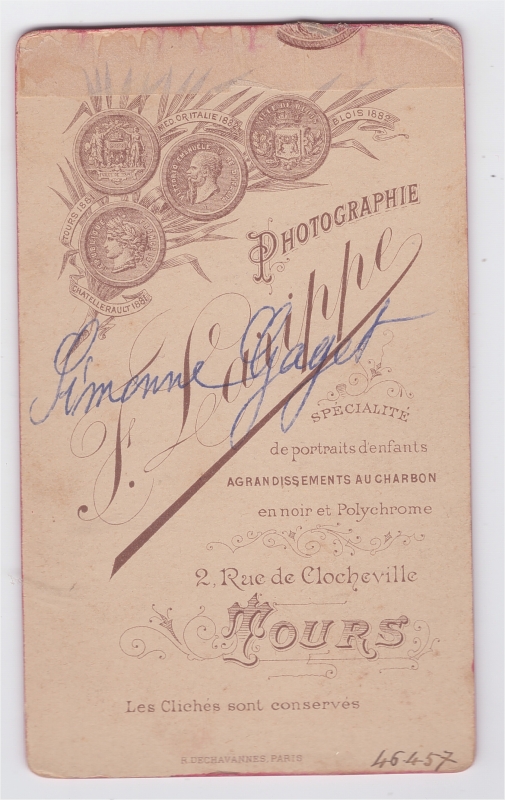 MED OR ITALIE 1882
BLOIS 1882
TOURS 1881
CHATELLERAULT 1881
PHOTOGRAPHIE
Simonne Gaget
SPÉCIALITÉ
de portraits d'enfants
AGRANDISSEMENTS AU CHARBON
en noir et Polychrome
2, Rue de Clocheville
TOURS
Les Clichés sont conservés
R. DECHAVANNES, PARIS
46457